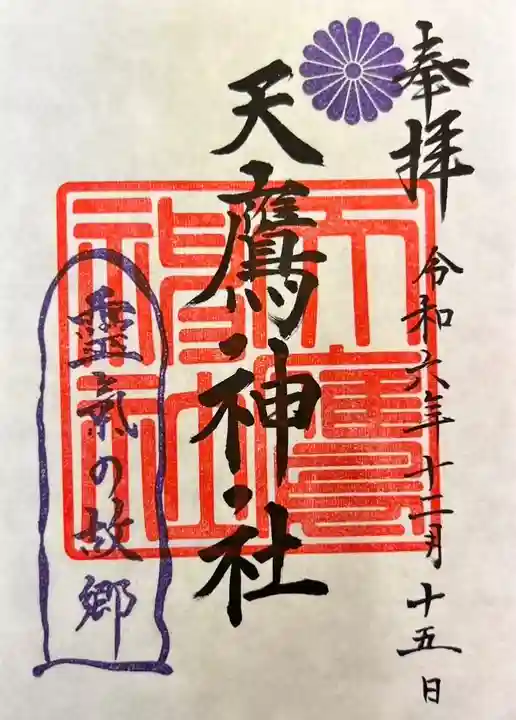 奉拝
令和六年十二月十五日
天鷹神社
天鷹神社
霊氣の故郷